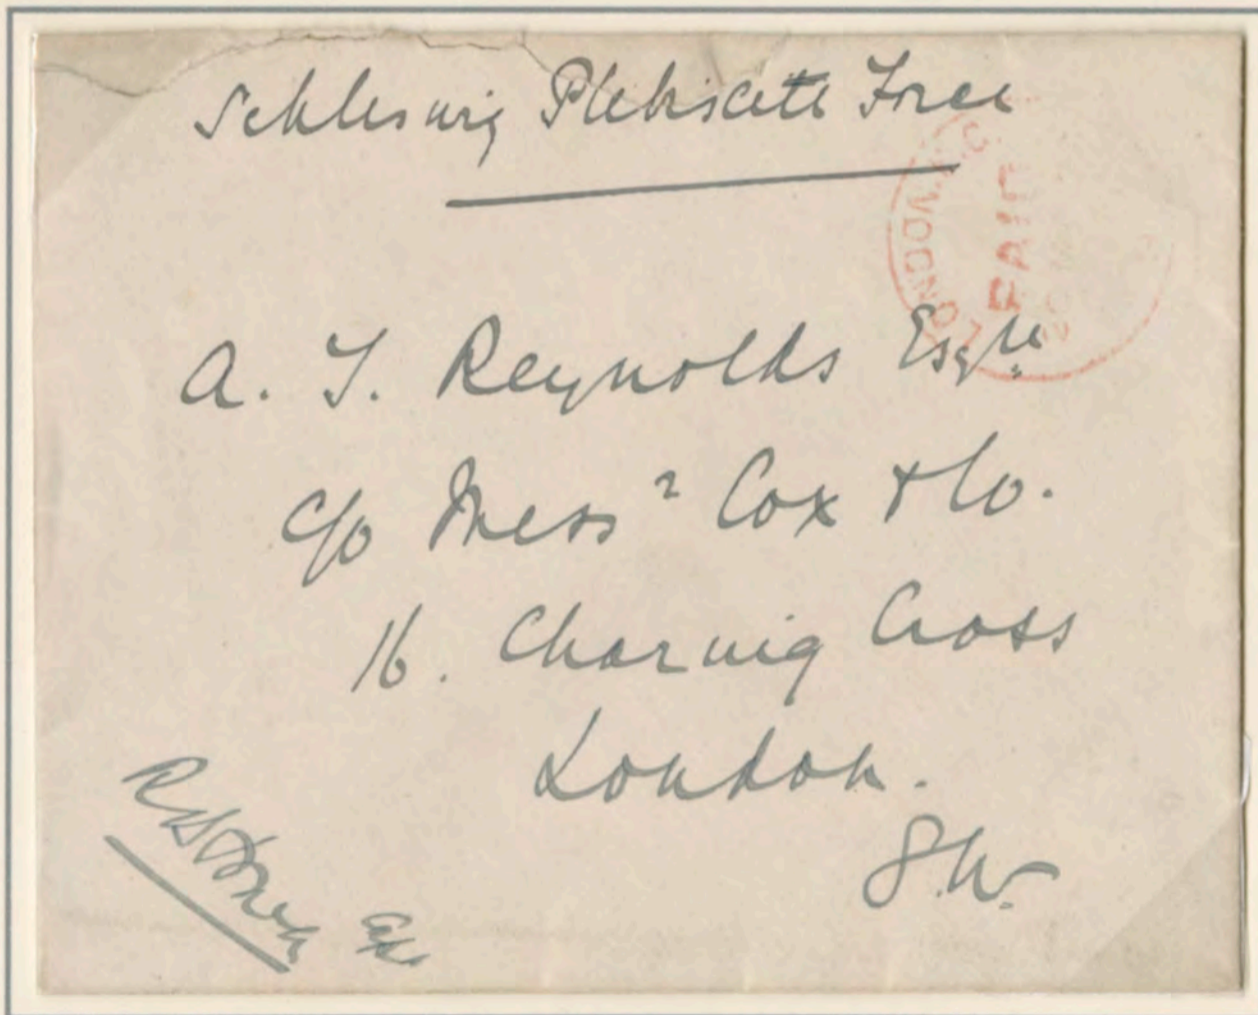 Schleswig Plebiscite Force
LONDON
PAID
A. T. Reynolds Esqre.
c/o Messrs Cox & Co.
16. Charing Cross
London.
S.W.
Capt